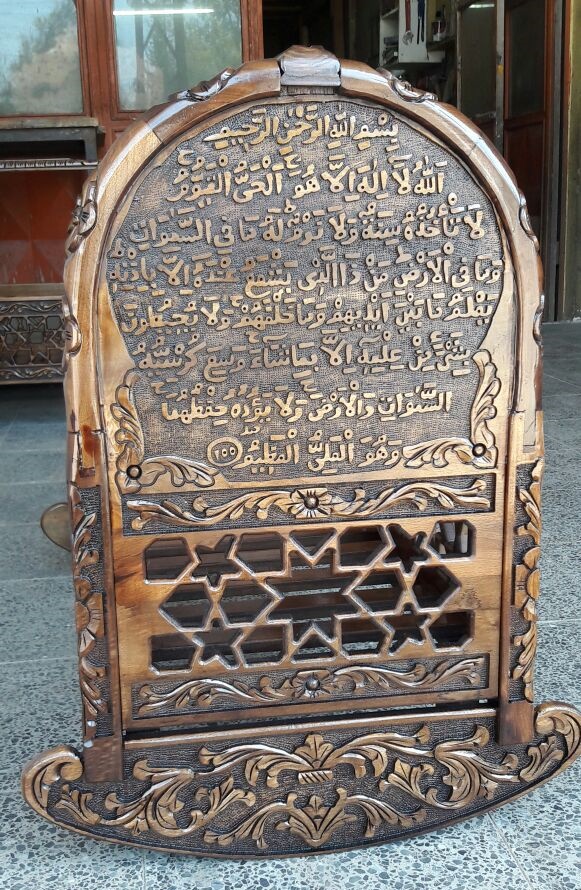 بِسْمِ اللّٰهِ الرَّحْمٰنِ الرَّحِيمِ
اَللّٰهُ لَا اِلٰهَ اِلَّا هُوَ اَلْحَىُّ الْقَيُّومُ
لَا تَأْخُذُهُ سِنَةٌ وَلَا نَوْمٌ لَهُ مَا فِى السَّمٰوَاتِ
وَمَا فِى الْاَرْضِ مَنْ ذَا الَّذِى يَشْفَعُ عِنْدَهُ اِلَّا بِاِذْنِهِ
يَعْلَمُ مَا بَيْنَ اَيْدِيهِمْ وَمَا خَلْفَهُمْ وَلَا يُحِيطُونَ
بِشَىْءٍ مِنْ عِلْمِهِ اِلَّا بِمَا شَاءَ وَسِعَ كُرْسِيُّهُ
السَّمٰوَاتِ وَالْاَرْضَ وَلَا يَؤُدُهُ حِفْظُهُمَا
وَهُوَ الْعَلِىُّ الْعَظِيمُ ٢٥٥